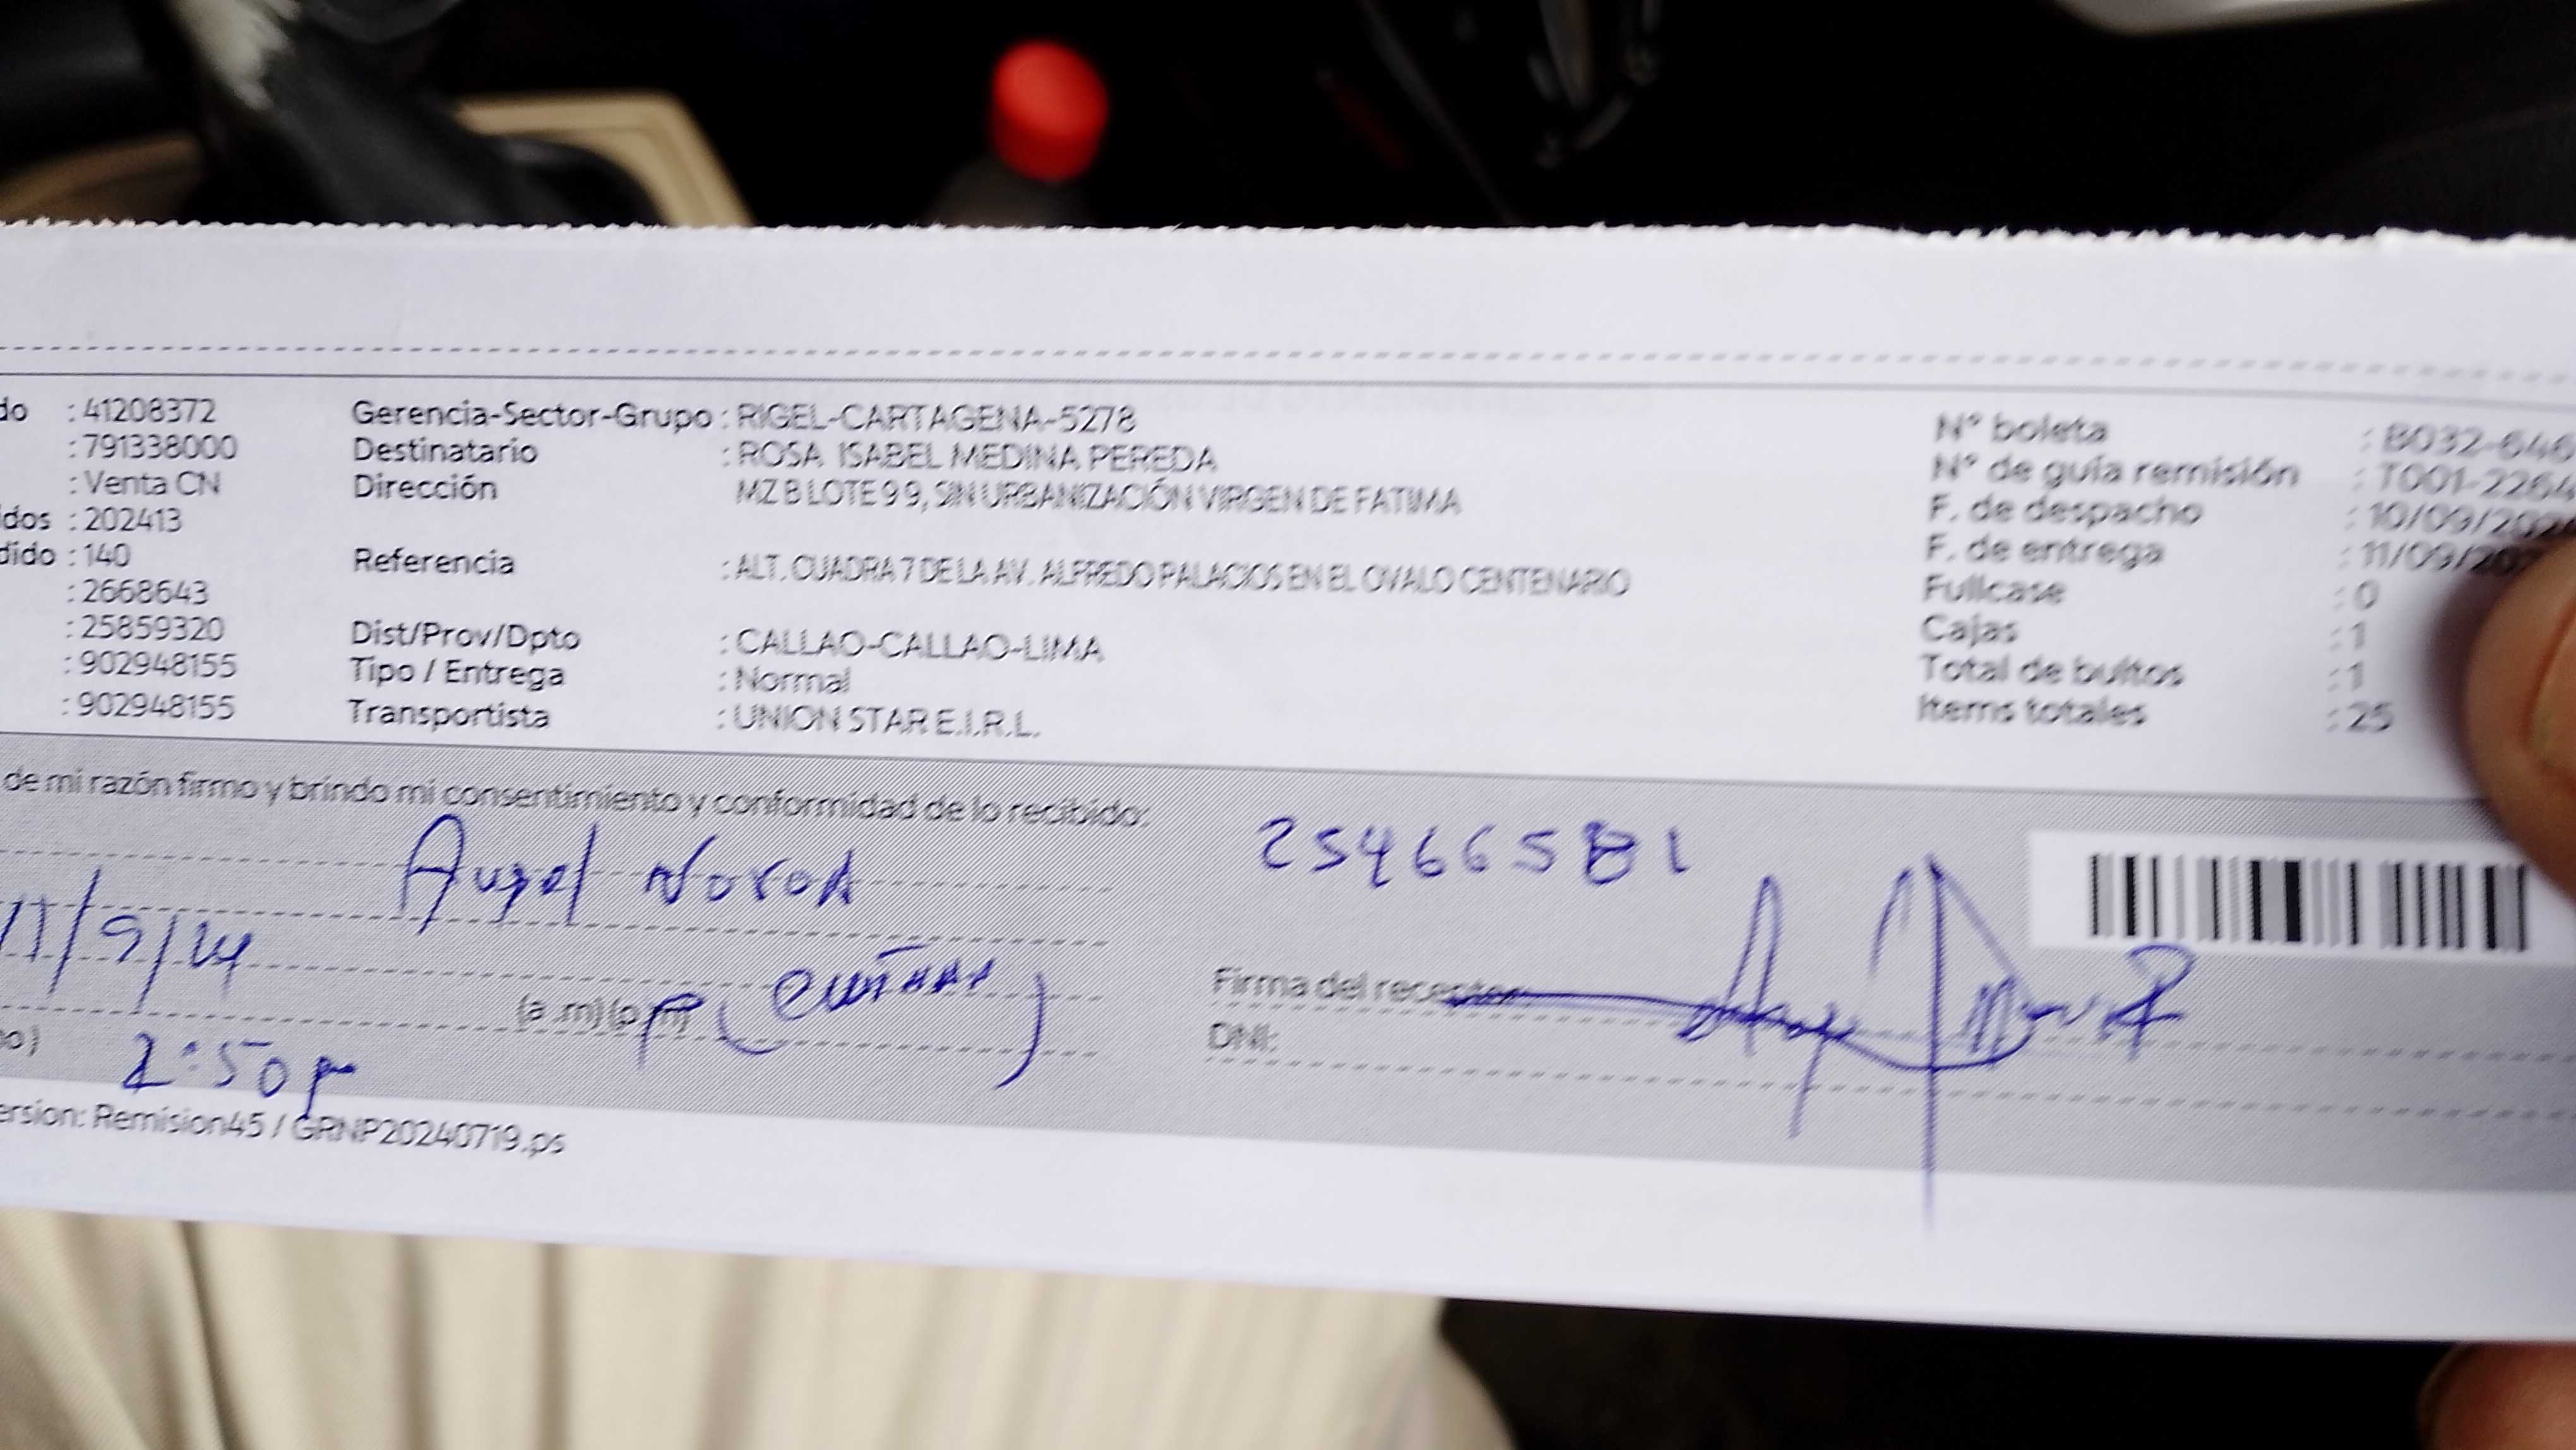 do : 41208372 Gerencia-Sector-Grupo : RIGEL-CARTAGENA-5278 N° boleta : B032-646
: 791338000 Destinatario : ROSA ISABEL MEDINA PEREDA N° de guía remisión : T001-2264
: Venta CN Dirección MZ B LOTE 9 9, SIN URBANIZACIÓN VIRGEN DE FATIMA F. de despacho : 10/09/202
idos : 202413 F. de entrega : 11/09/20
dido : 140 Referencia : ALT. CUADRA 7 DE LA AV. ALFREDO PALACIOS EN EL OVALO CENTENARIO Fullcase : 0
: 2668643 Cajas : 1
: 25859320 Dist/Prov/Dpto : CALLAO-CALLAO-LIMA Total de bultos : 1
: 902948155 Tipo / Entrega : Normal Items totales : 25
: 902948155 Transportista : UNION STAR E.I.R.L.
de mi razón firmo y brindo mi consentimiento y conformidad de lo recibido:
Angel Novoa 25466581
11/9/24
(a .m) (p.m) (cuñado) Firma del receptor:
o) 2:50 p DNI:
ersion: Remision45 / GRNP20240719.ps